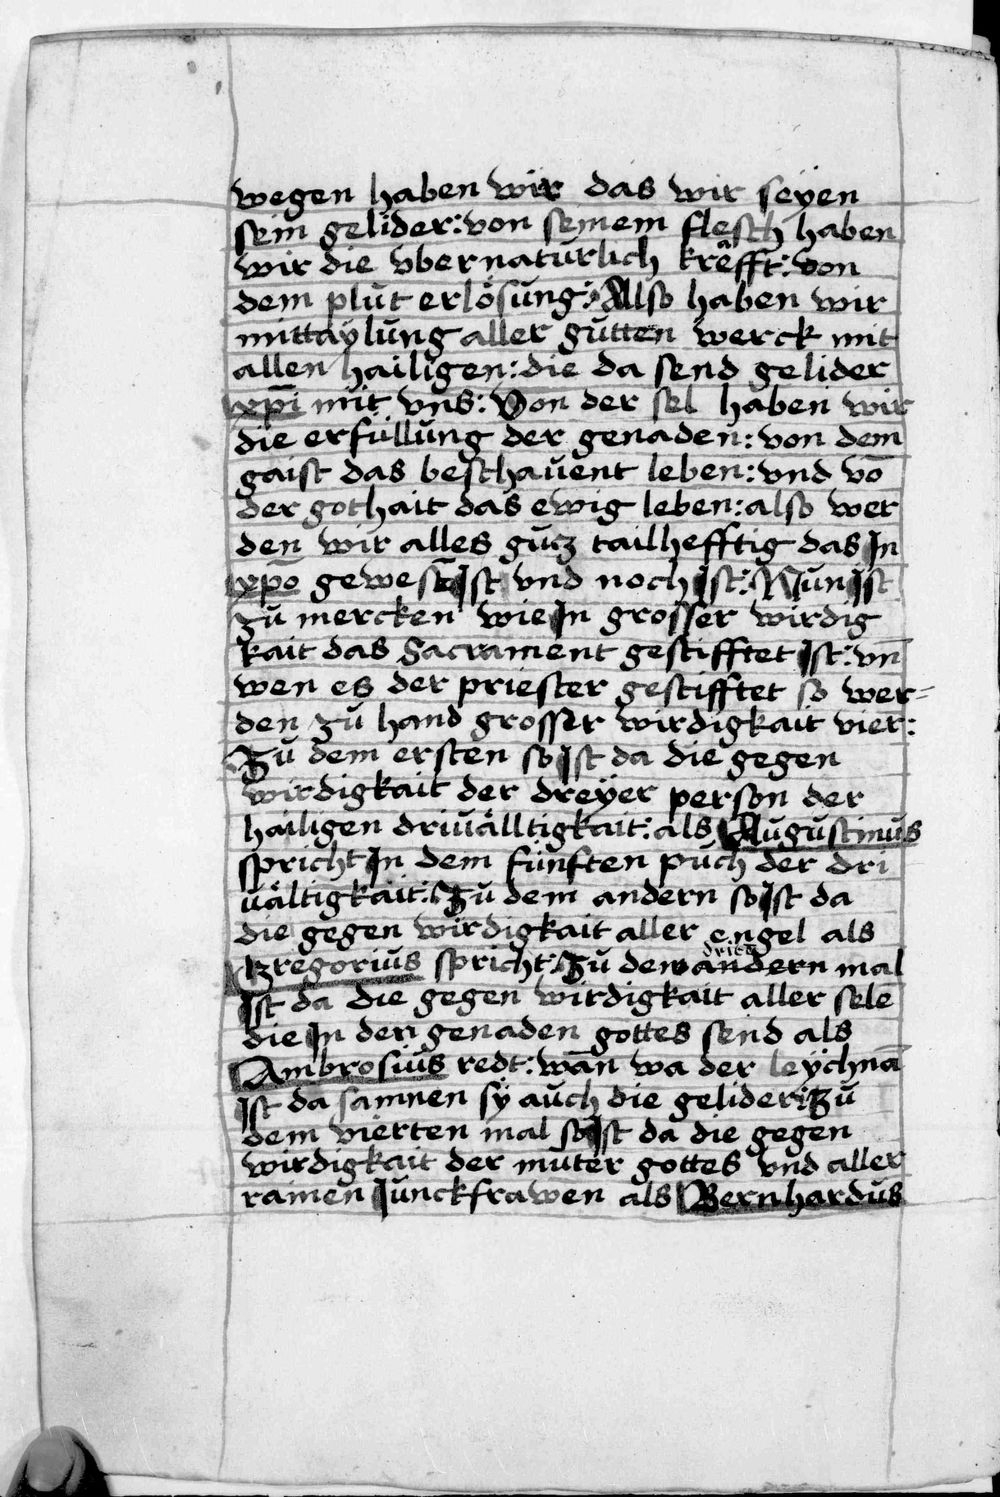 wegen haben wir das wir seÿen
sein gelider: von seinem flesch haben
wir die vbernatúrlich krêfft: von
dem plůt erlösung: Allso haben wir
mittaÿlúng aller gútten werck mit
allen hailigen: die da send gelider
xp̄i mit vns: Von der sel haben wir
die erfüllúng der genaden: von dem
gaist das beschaúent leben: vnd vō
der gothait das ewig leben: also wer
den wir alles gútz tailhefftig das In
xp̄o gewesē Ist vnd noch Ist: Nún Ist
zú mercken wie In grosser wirdig
kait das Sacrament gestifftet Ist: vn̄
wen es der priester gestifftet so wer=
den zú hand grosser wirdigkait vier:
Zú dem ersten so Ist da die gegen
wirdigkait der dreÿer person der
hailigen driuälltigkait: als Aúgústinús
spricht In dem fúnften púch der dri
uältigkait: Zú dem andern so Ist da
die gegen wirdigkait aller engel als
Gregoriús spricht: Zú dem andern dritē mal
Ist da die gegen wirdigkait aller sele
die In den genaden gottes send als
Ambrosiús redt: wān wa der leÿchnā
Ist da samnen sÿ aúch die gelider: Zú
dem vierten mal so Ist da die gegen
wirdigkait der múter gottes vnd aller
rainen Júnckfrawen als Bernhardús